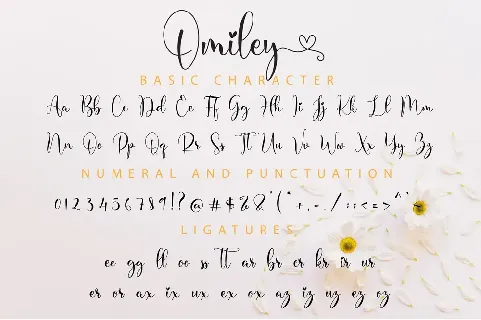 Omiley
BASIC CHARACTER
Aa Bb Cc Dd Ee Ff Gg Hh Ii Jj Kk Ll Mm
Nn Oo Pp Qq Rr Ss Tt Uu Vv Ww Xx Yy Zz
NUMERAL AND PUNCTUATION
0123456789!?@#$%&'("+,-./:;<=>^*
LIGATURES
ee gg ll oo ss tt ar br cr kr ir ur
er or ax ix ux ex ox az iz uz ez oz